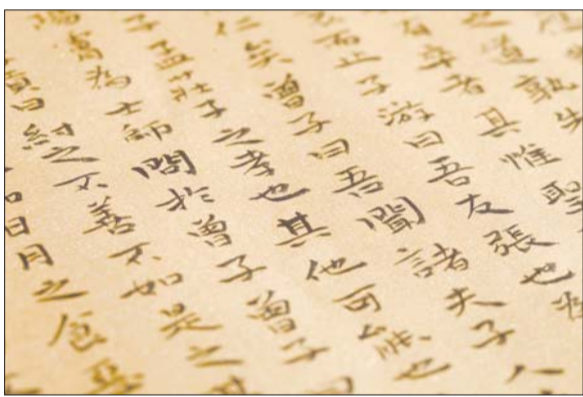 之道孰先
有卒者其惟聖
而止子游曰吾友張也為
仁矣曾子曰吾聞諸夫子人
子孟莊子之孝也其他可能也
陽膚為士師問於曾子曾子曰
貢曰紂之不善不如是之甚
日月之食焉